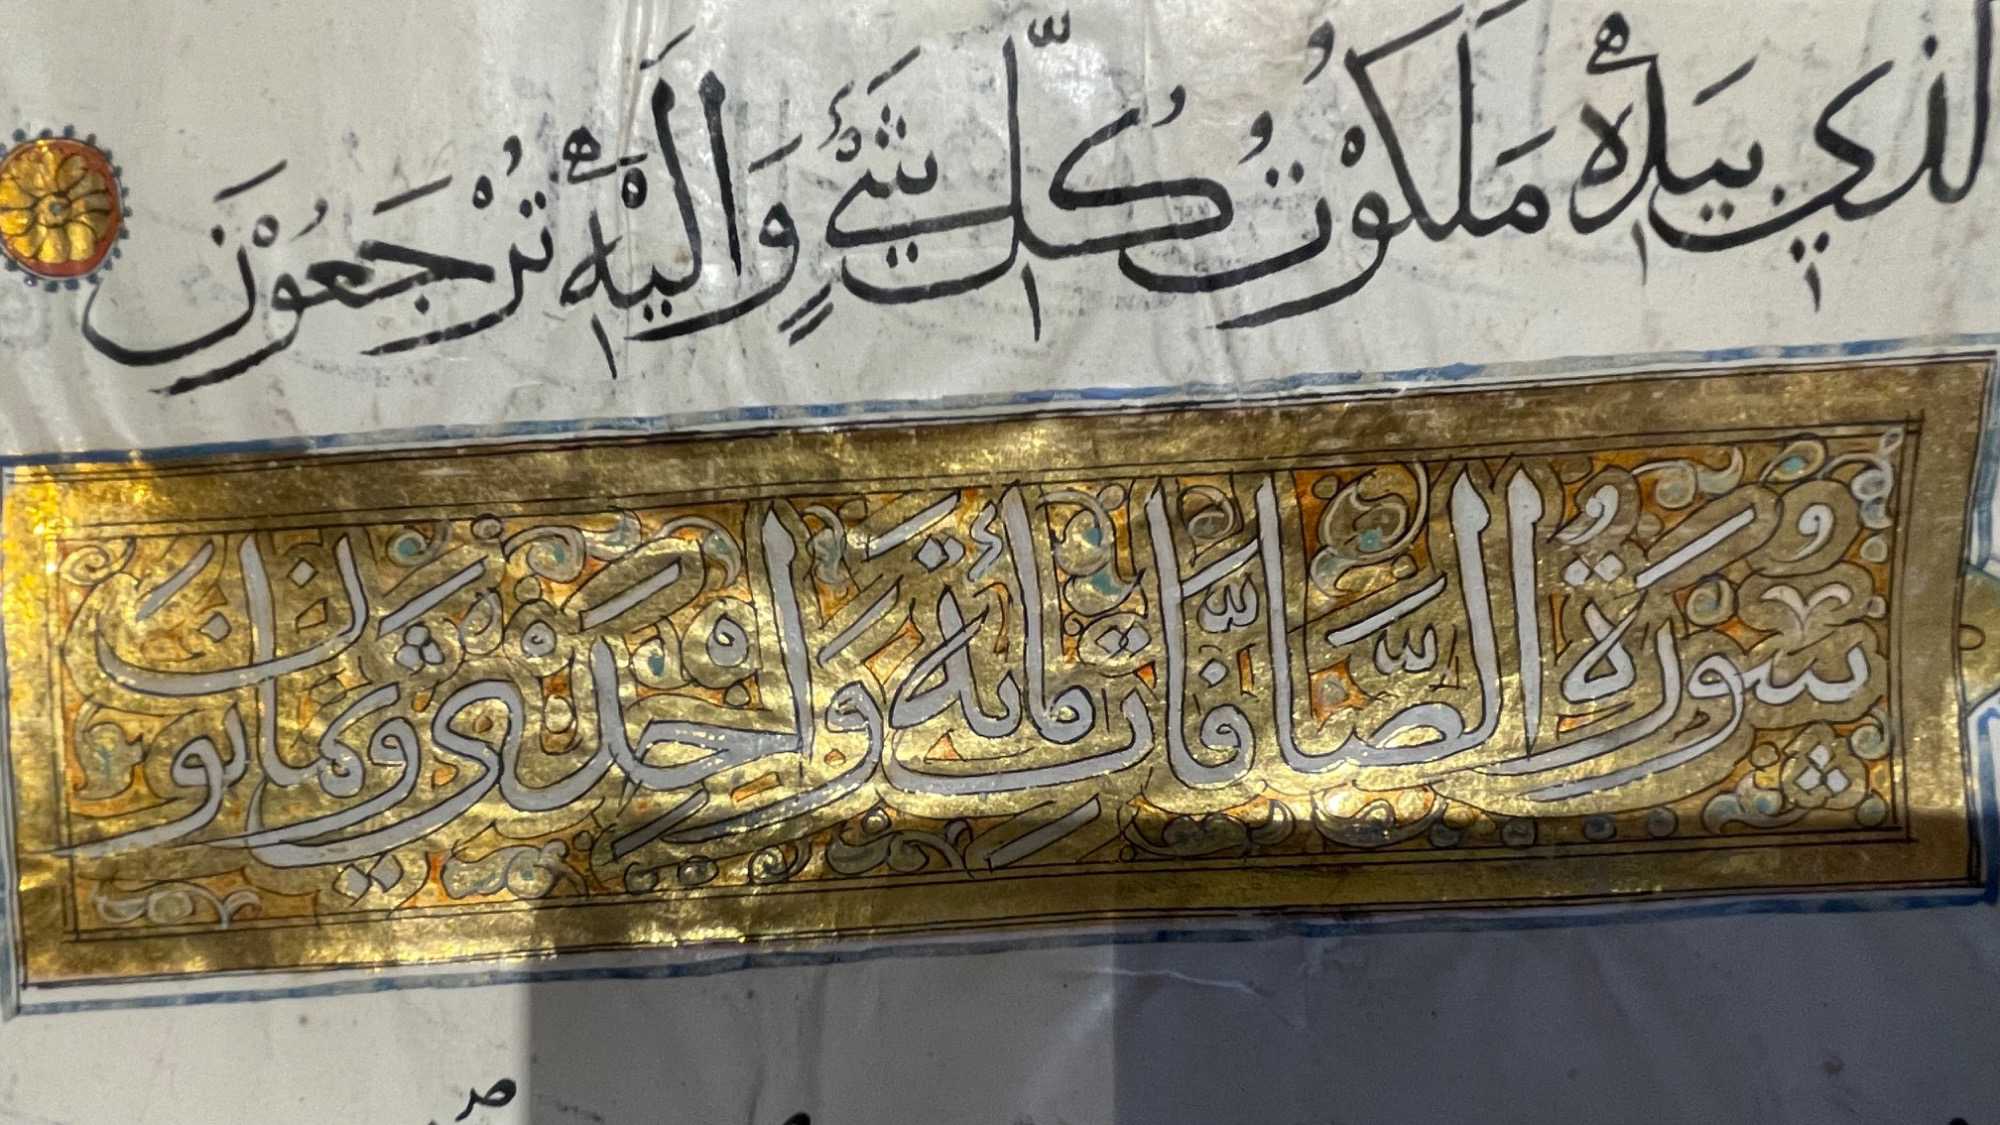 لَّذِي بِيَدِهٖ مَلَكُوْتُ كُلِّ شَيْءٍ وَاِلَيْهِ تُرْجَعُوْنَ
سُوْرَةُ الصَّافَّاتِ مِائَةٌ وَاِحْدٰى وَثَمَانُوْنَ